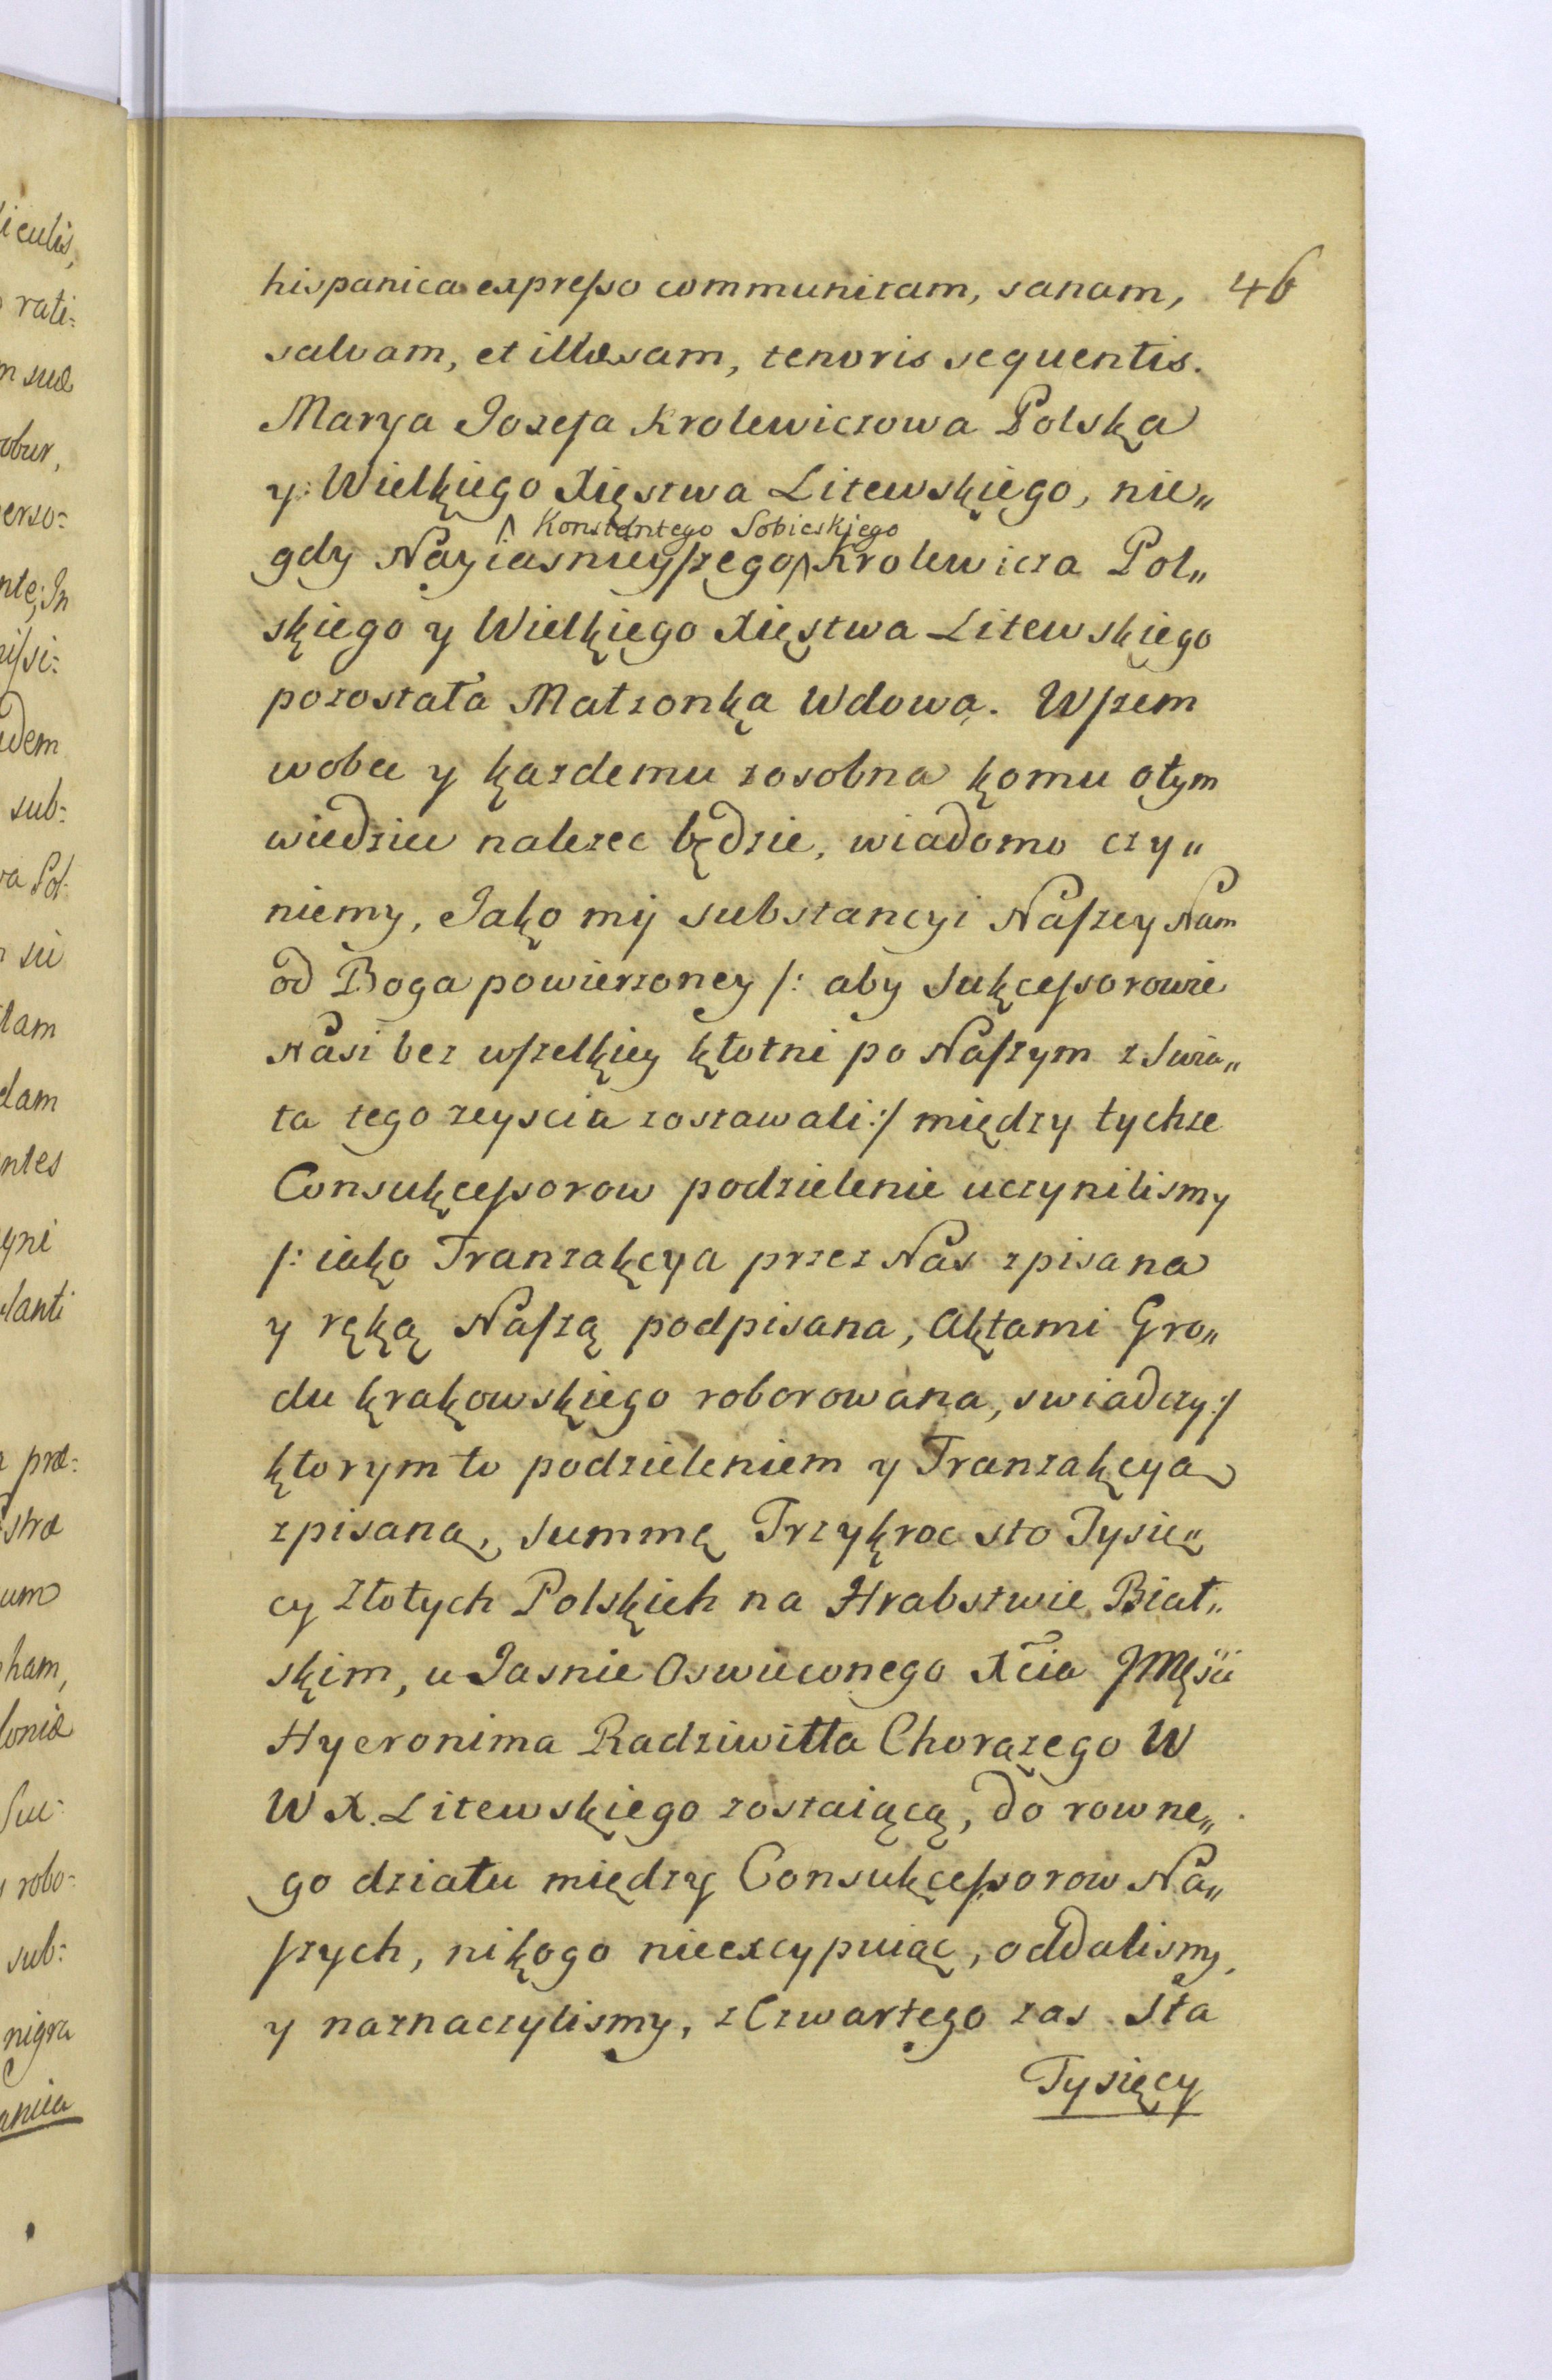 hispanica expresso communitam, sanam, 46
salvam, et illæsam, tenoris sequentis.
Marya Jozefa Krolewiczowa Polska
y Wielkiego Xięstwa Litewskiego, nie„
^ Konstantego Sobieskiego
gdy Nayiasnieyszego ^ Krolewicza Pol„
skiego y Wielkiego Xięstwa Litewskiego
pozostała Małzonka Wdowa. Wszem
wobec y kazdemu zosobna komu otym
wiedziec nalezec będzie, wiadomo czy„
niemy, Jako my substancyi Naszey Nam
od Boga powierzoney /: aby Sukcessorowie
Nasi bez wszelkiey kłotni po Naszym z Swia„
ta tego zeyscia zostawali :/ między tychze
Consukcessorow podzielenie uczynilismy
/: iako Tranzakcya przez Nas zpisana
y ręką Naszą podpisana, Aktami Gro„
du krakowskiego roborowana, swiadczy :/
ktorym to podzieleniem y Tranzakcya
zpisaną, Summę Trzykroc sto Tysię„
cy Złotych Polskich na Hrabstwie Biał„
skim, u Jasnie Oswieconego Xcia JMęsci
Hyeronima Radziwiłła Chorązego W
W X. Litewskiego zostaiącą, do rowne„
go działu między Consukcessorow Na„
szych, nikogo nieexcypuiąc, oddalismy,
y naznaczylismy, z Czwartego zas Sta
Tysięcy
iculis,
rati:
m suæ
obur,
erso:
nte; In
issi:
idem
sub:
ra Pol:
n sie
tam
dam
ntes
yni
lanti
præ:
stræ
um
ham,
loniæ
Suc:
robo:
sub:
nigra
anica